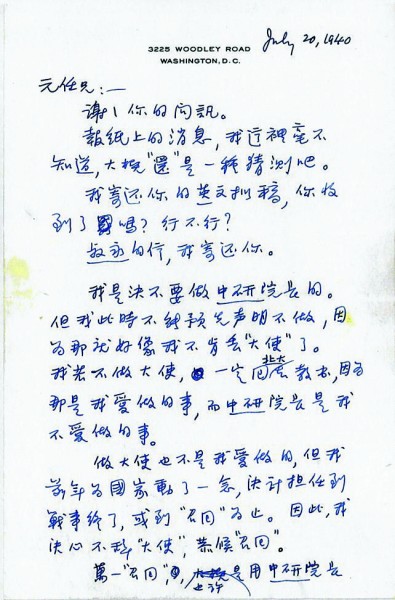 3225 WOODLEY ROAD
WASHINGTON, D.C.
July 20, 1940
元任兄：—
謝謝你的问訊。
報紙上的消息，我這裡毫不
知道，大概“還”是一種猜測吧。
我寄还你的英文拟稿，你收
到了嗎？行不行？
叔永的信，我寄还你。
我是决不要做中研院長的。
但我此時不能預先声明不做，因
为那就好像我不肯丢“大使”了。
我若不做大使，一定回北大去教书，因为
那是我爱做的事，而中研院長是我
不爱做的事。
做大使也不是我爱做的，但我
前年为國家動了一念，决計担任到
戰事终了，或到“召回”为止。因此，我
决心不辞“大使”，恭候“召回”。
萬一“召回”，也许是用中研院長